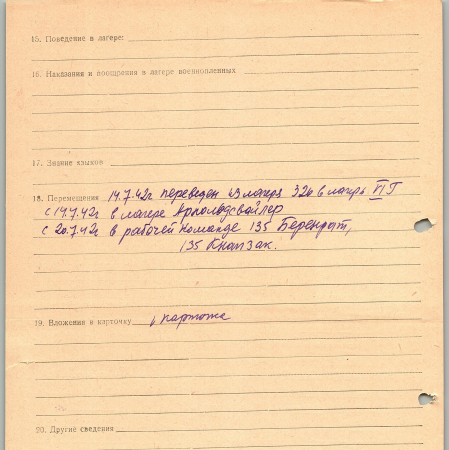 15. Поведение в лагере:
16. Наказания и поощрения в лагере военнопленных
17. Знание языков
18. Перемещения 14.7.42г переведен из лагеря 326 в лагерь VI Г
с 14.7.42г в лагере Арнольдсвайлер
с 20.7.42г в рабочей команде 135 Берендт,
135 Кнапзак.
19. Вложения в карточку
20. Другие сведения